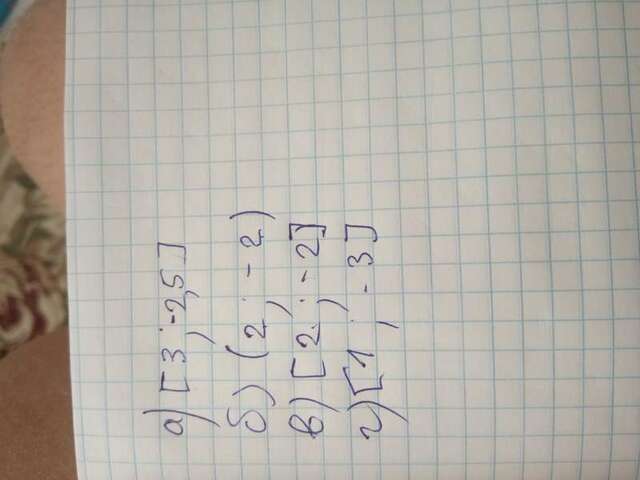 а) [3 ; -2,5]
б) (2 ; -2)
в) [2 ; -2]
г) [1 ; -3]